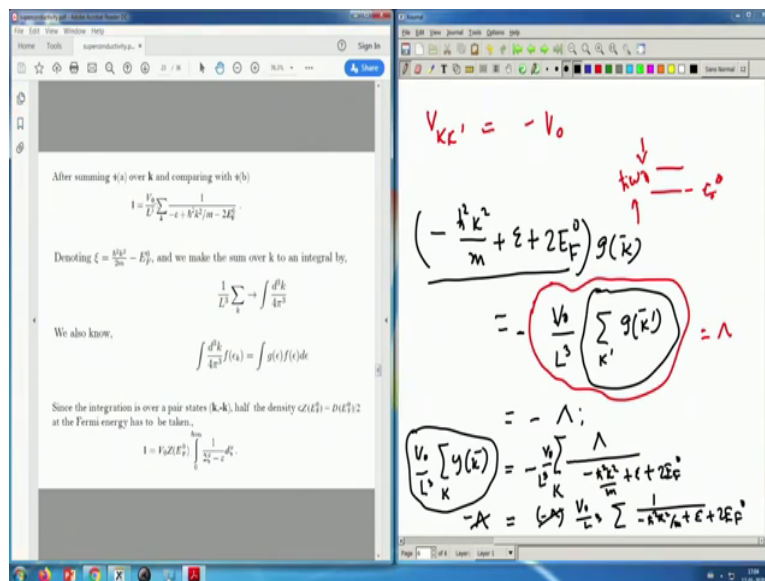 superconductivity.pdf - Adobe Acrobat Reader DC
File Edit View Window Help
Home Tools superconductivity.p... × Sign In
Share
After summing 4(a) over k and comparing with 4(b)
1 = V₀/L³ ∑ₖ 1/(-ε + ℏ²k²/m - 2E⁰_F) .
Denoting ξ = ℏ²k²/2m - E⁰_F, and we make the sum over k to an integral by,
1/L³ ∑ₖ → ∫ d³k/4π³
We also know,
∫ d³k/4π³ f(ϵₖ) = ∫ g(ϵ)f(ϵ)dϵ
Since the integration is over a pair states (k,-k), half the density
at the Fermi energy has to be taken.,
Xournal
File Edit View Journal Tools Options Help
Sans Normal 12
V_KK' = - V₀
(- ℏ²k²/m + ε + 2E_F⁰) g(k̄)
= - V₀/L³ ∑_K' g(k̄') = Λ
= - Λ ;
V₀/L³ ∑_K g(k̄) = - V₀/L³ ∑_K Λ/(-ℏ²k²/m + ε + 2E_F⁰)
-Λ = (-Λ) V₀/L³ ∑ 1/(-ℏ²k²/m + ε + 2E_F⁰)
Page 6 of 6 Layer: Layer 1
17:04